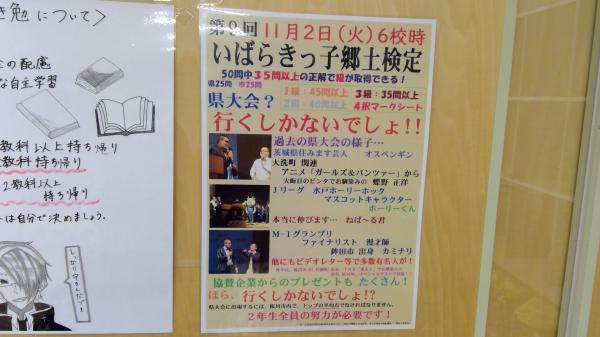 き勉について〉
の配慮
な自主学習
教科以上持ち帰り
教科持ち帰り
2教科以上
持ち帰り
は自分で決めましょう。
第9回 11月2日(火)6校時
いばらきっ子郷土検定
50問中35問以上の正解で級が取得できる!
県25問 市25問
1級:45問以上 3級:35問以上
2級:40問以上 4択マークシート
県大会?
行くしかないでしょ!!
過去の県大会の様子…
茨城県住みます芸人 オスペンギン
大洗町 関連
アニメ「ガールズ&パンツァー」から
大晦日のビンタでお馴染みの 蝶野 正洋
Jリーグ 水戸ホーリーホック
マスコットキャラクター
ホーリーくん
本当に伸びます… ねば~る君
M-1グランプリ
ファイナリスト 漫才師
鉾田市 出身 カミナリ
他にもビデオレター等で多数有名人が!
協賛企業からのプレゼントも たくさん!
ほら、行くしかないでしょ!?
県大会に出場するには、桜川市内で、トップの平均点でなければなりません。
2年生全員の努力が必要です!